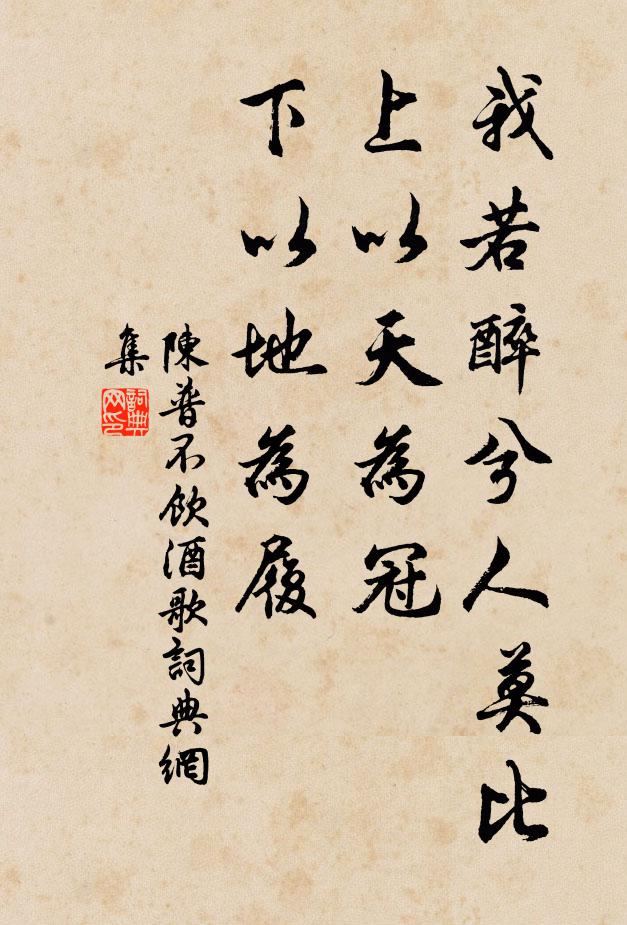 我若醉兮人莫比
上以天為冠
下以地為履
陳普不飲酒歌詞典網
集
詞典
网印